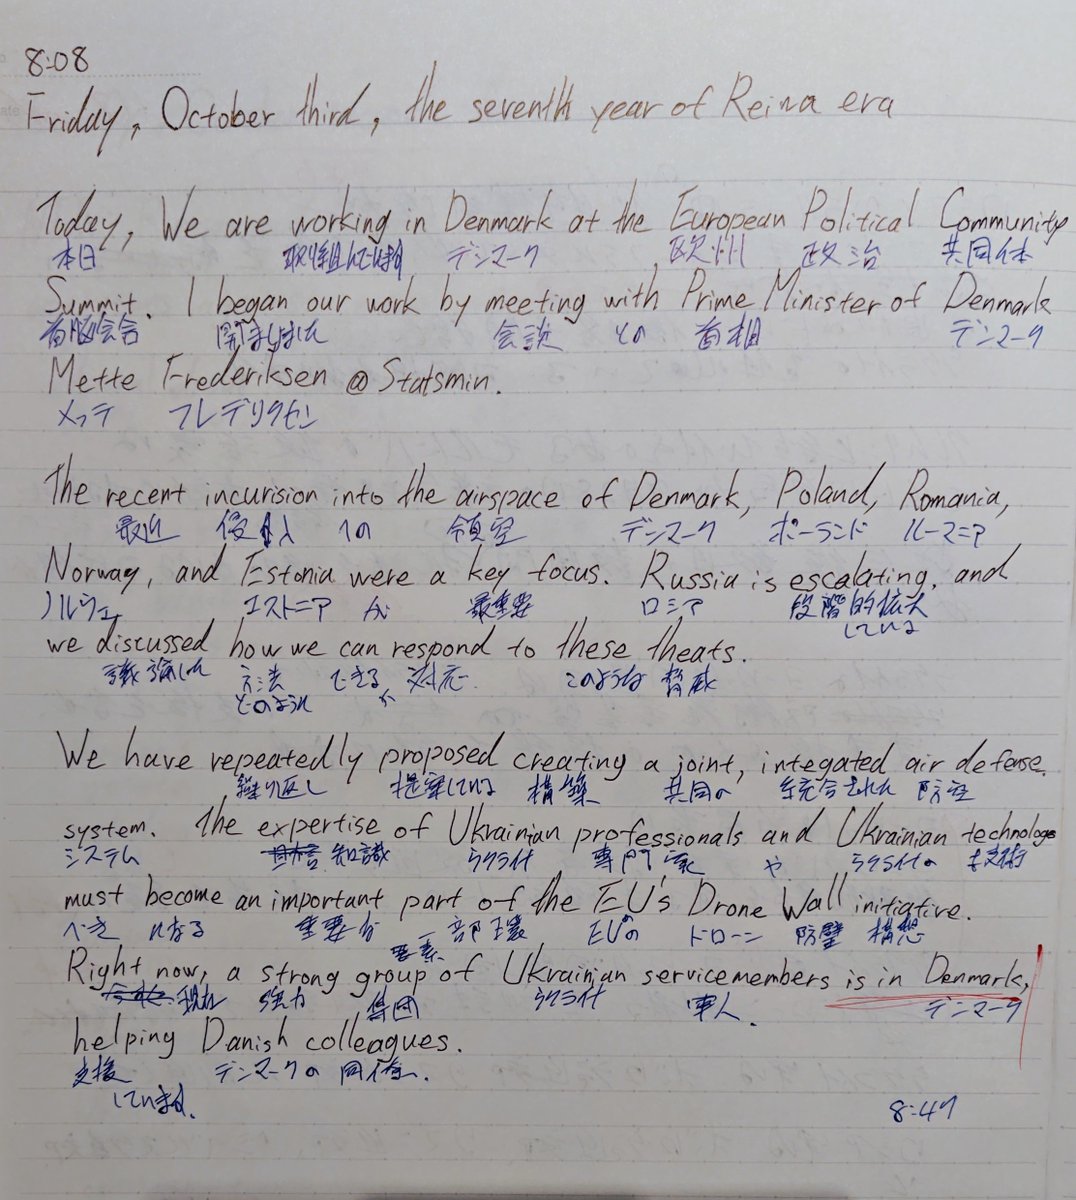 8:08
Friday, October third, the seventh year of Reiwa era
Today, We are working in Denmark at the European Political Community
本日 取り組んでいます デンマーク 欧州 政治 共同体
Summit. I began our work by meeting with Prime Minister of Denmark
首脳会合 開始しました 会談 との 首相 デンマーク
Mette Frederiksen @Statsmin.
メッテ フレデリクセン
The recent incurision into the airspace of Denmark, Poland, Romania,
最近 侵入 への 領空 デンマーク ポーランド ルーマニア
Norway, and Estonia were a key focus. Russia is escalating, and
ノルウェ エストニア が 最重要 ロシア 段階的拡大
している
we discussed how we can respond to these theats.
議論した 方法 できる 対応 このような 脅威
どのように か
We have repeatedly proposed creating a joint, integated air defense
繰り返し 提案している 構築 共同の 統合された 防空
system. The expertise of Ukrainian professionals and Ukrainian technology
システム 知識 ウクライナ 専門家 や ウクライナの 技術
must become an important part of the EU's Drone Wall initiative.
べき になる 重要な 一部 環 EUの ドローン 防壁 構想
要素
Right now, a strong group of Ukrainian servicemembers is in Denmark,
現在 強力 集団 ウクライナ 軍人. デンマーク
helping Danish colleagues.
支援 デンマークの 同僚へ.
しています.
8:47